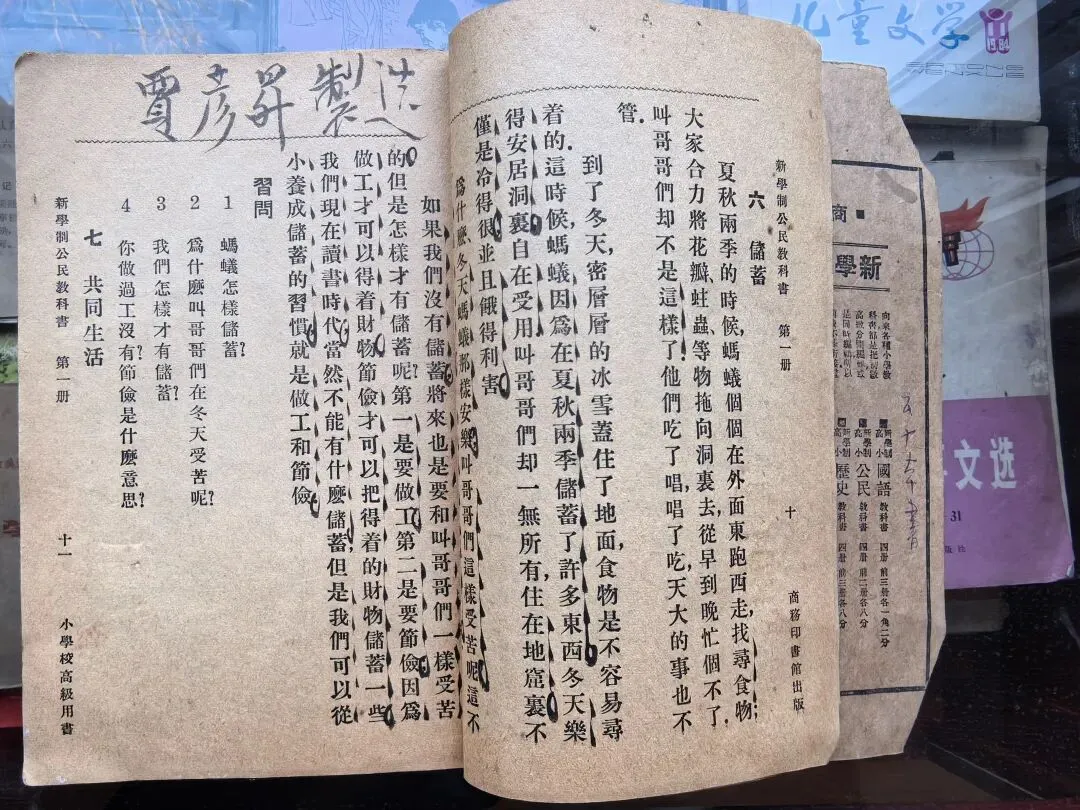 儿童文学
11
1984
商
新學
新學制高小 國語 教科書 四册 前三册各一角二分
新學制高小 公民 教科書 四册 前二册各八分
新學制高小 歷史 教科書 四册 前三册各八分
文选
31
新學制公民教科書 第一册 十 商務印書館出版
六 儲蓄
夏秋兩季的時候,螞蟻個個在外面東跑西走,找尋食物;
大家合力將花瓣,蛀蟲,等物拖向洞裏去,從早到晚忙個不了.
叫哥哥們却不是這樣了!他們吃了唱,唱了吃,天大的事也不
管.
到了冬天,密層層的冰雪蓋住了地面,食物是不容易尋
着的.這時候,螞蟻因爲在夏秋兩季儲蓄了許多東西冬天樂
得安居洞裏自在受用叫哥哥們却一無所有,住在地窟裏不
僅是冷得很並且餓得利害
爲什麽,冬天螞蟻那樣安樂叫哥哥們這樣受苦呢這不
賈彦昇製造
如果我們沒有儲蓄將來也是要和叫哥哥們一樣受苦
的但是怎樣才有儲蓄呢第一是要做工第二是要節儉因爲
做工才可以得着財物節儉才可以把得着的財物儲蓄一些
我們現在讀書時代當然不能有什麽儲蓄,但是我們可以從
小養成儲蓄的習慣就是做工和節儉
習問
1 螞蟻怎樣儲蓄?
2 爲什麽叫哥哥們在冬天受苦呢?
3 我們怎樣才有儲蓄?
4 你做過工沒有?節儉是什麽意思?
七 共同生活
新學制公民教科書 第一册 十一 小學校高級用書